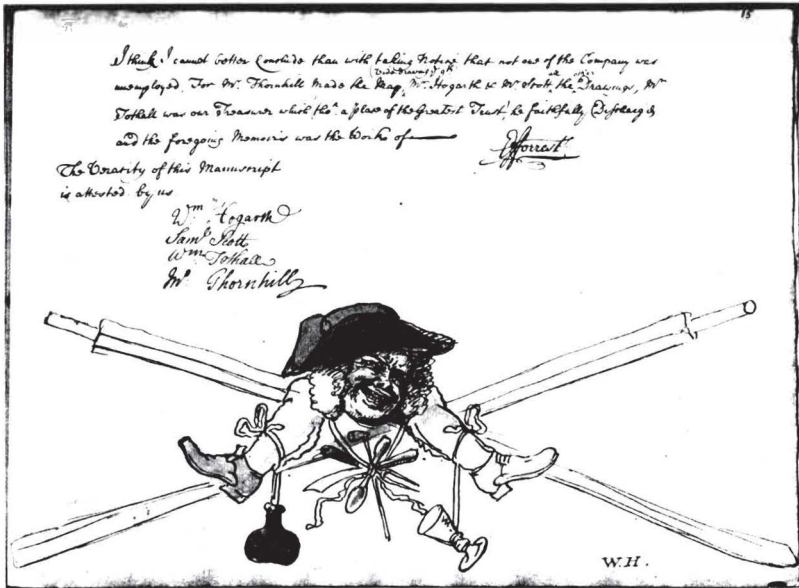 15
I think I cannot better Conclude than with taking Notice that not one of the Company was
unemployed, For Mr. Thornhill Made the Map, Mr. Hogarth & Mr. Scott the all other Drawings, Mr
Tothall was our Treasurer which tho' a place of the Greatest Trust, he faithfully Discharg'd
and the foregoing Memoirs was the Work of
EForrest.
The Veracity of this Manuscript
is attested by us
Wm Hogarth
Saml Scott
Wm Tothall
Jn. Thornhill
W.H.